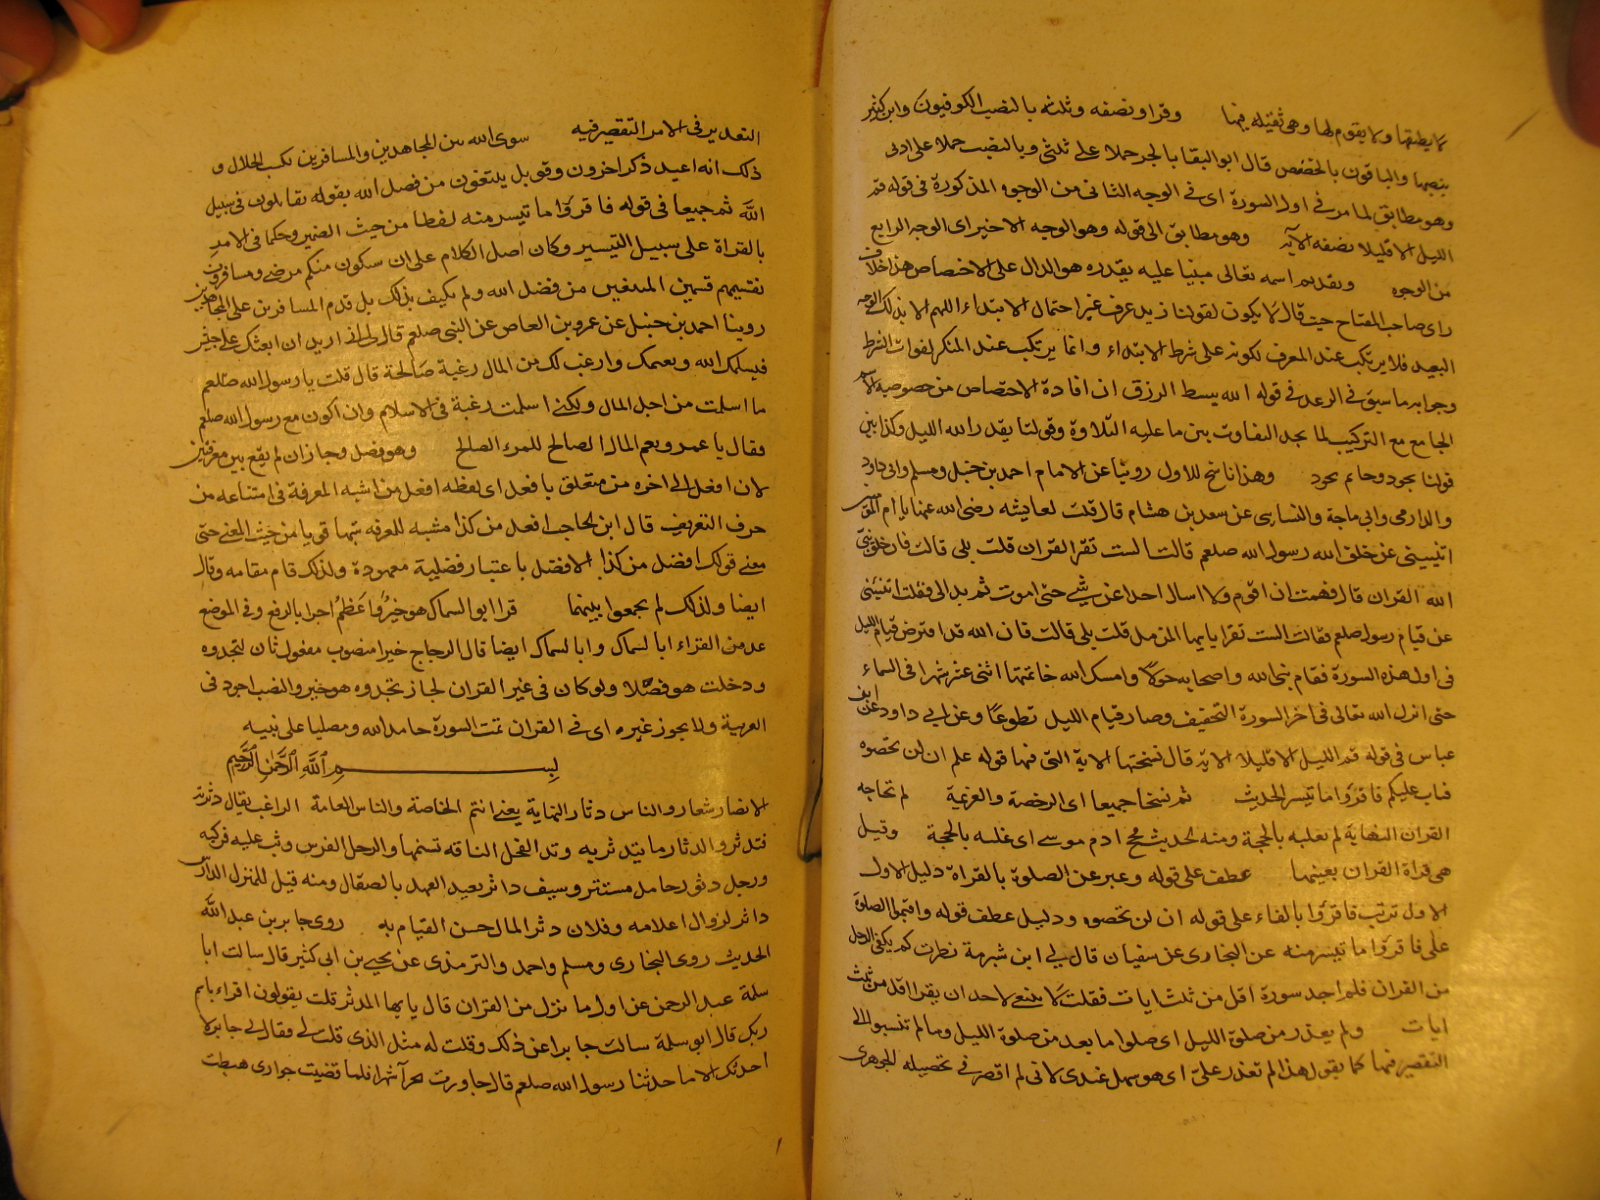 لا يطيقها ولا يقوم لها وهي ثقيله فيها وقرا ونصفه وثلثه بالنصب الكوفيون وابن كثير
بنصبها والباقون بالخفض قال ابو البقا بالجر حملا على ثلثي وبالنصب حملا على ادنى
وهو مطابق لما مر في اول السورة اى في الوجه الثانى من الوجوه المذكورة في قوله قم
الليل الا قليلا نصفه الآية وهو مطابق الى قوله وهو الوجه الاخير اى الوجه الرابع
من الوجوه وتقديم اسمه تعالى مبنيا عليه يقدره هو الدال على الاختصاص هذا خلاف
راى صاحب المفتاح حيث قال لا يكون لقولنا زيد عرف غير احتمال الابتداء اللهم الا بذلك الوجه
البعيد فلا يرتكب عند المعرف لكونه على شرط الابتداء وانما يرتكب عند المنكر لفوات الشرط
وجوابه ما سبق في الرعد في قوله الله يبسط الرزق ان افادة الاختصاص من خصوصية
الجامع مع التركيب لما نجد التفاوت بين ما عليه التلاوة وقولنا يقدر الله الليل وكذا بين
قولنا يجود وحاتم يجود وهذا ناسخ للاول روينا عن الامام احمد بن حنبل ومسلم وابى داود
والدارمى وابى ماجة والنسايى عن سعد بن هشام قال قلت لعايشه رضى الله عنها يا ام
انبيينى عن خلق رسول الله صلعم قالت الست تقرا القران قلت بلى قالت فان خلق نبى
الله القران قال فهممت ان اقوم ولا اسال احدا عن شيء حتى اموت ثم بدا لى فقلت انبئينى
عن قيام رسول صلعم فقالت الست تقرا يا يها المزمل قلت بلى قالت فان الله قد افترض قيام الليل
في اول هذه السورة فقام نبى الله واصحابه حولا وامسك الله خاتمتها اثنى عشر شهرا فى السماء
حتى انزل الله تعالى في اخر السورة التخفيف وصار قيام الليل تطوعا وعن ابى داود عن ابن
عباس في قوله قم الليل الا قليلا الاية قال نسختها الاية التى فيها قوله علم ان لن تحصوه
فتاب عليكم فاقرؤا ما تيسر الحديث ثم نسخا جميعا اى الرخصة والعزيمة لم تحاجه
القران النهاية لم تغلبه بالحجة ومنه لحديث فحج ادم موسى اى غلبه بالحجة وقيل
هى قراة القران بعينها عطف على قوله وعبر عن الصلوة بالقراة دليل الاول
الاول ترتب فاقرؤا بالفاء على قوله ان لن تحصوه ودليل عطف قوله واقيموا الصلوة
على فاقرؤا ما تيسر منه عن البخارى عن سفيان قال لى ابن شبرمة نظرت كم يكفى الرجل
من القران فلم اجد سورة اقل من ثلث ايات فقلت لا ينبغى لاحد ان يقرا اقل من ثلث
ايات ولم يعذر من صلوة الليل اى صلوا ما بعد من صلوة الليل وما لم تنسبوا الى
التقصير فيها كما يقول هذا لم تعذر على اى هو سهل عندى لانى لم اقصر في تحصيله الجوهرى
التعذير في الامر التقصير فيه سوى الله بين المجاهدين والمسافرين لكسب الحلال و
ذلك انه اعيد ذكر اخرون وقوبل يبتغون من فضل الله بقوله يقاتلون في سبيل
الله ثم جميعا في قوله فاقرؤا ما تيسر منه لفظا من حيث الضمير وحكما في الامر
بالقراة على سبيل التيسير وكان اصل الكلام على ان سيكون منكم مرضى ومسافرون
تقسيمهم قسمين المبتغين من فضل الله ولم يكتف بذلك بل قدم المسافرين على المجاهدين
روينا احمد بن حنبل عن عمرو بن العاص عن النبى صلعم قال لى انى اريد ان ابعثك على جيش
فيسلمك الله ويغنمك وارغب لك من المال رغبة صالحة قال قلت يا رسول الله صلعم
ما اسلمت من اجل المال ولكنى اسلمت رغبة في الاسلام وان اكون مع رسول الله صلعم
وقال يا عمرو نعم المال الصالح للمرء الصالح وهو فصل وجاز ان لم يقع بين معرفتين
لان افعل الى اخره من متعلق بافعل اى لفظه افعل من اشبه المعرفة في امتناعه من
حرف التعريف قال ابن الحاجب افعل من كذا مشبه للمعرفه شبها قويا من حيث المعنى حتى
معنى قولك افضل من كذا الافضل باعتبار فضلية معهودة ولذلك قام مقامه وقال
ايضا ولذلك لم يجمعوا بينهما قرا ابو السماك هو خير واعظم اجرا بالرفع وفى الموضع
عد من القراء ابا السماك وابا السماك ايضا قال الزجاج خيرا منصوب مفعول ثان لتجدوه
ودخلت هو فصلا ولو كان في غير القران لجاز تجدوه هو خير والنصب اجود فى
العربية ولا يجوز غيره اى في القران تمت السورة حامدا لله ومصليا على نبيه
بسم الله الرحمن الرحيم
الانصار شعار والناس دثار النهاية يعنى انتم الخاصة والناس العامة الراغب يقال دثرته
فتدثر والدثار ما يتدثر به وتدثر الفحل الناقه تسنمها والرجل الفرس وثب عليه فركبه
ورجل دثور خامل مستتر وسيف داثر بعيد العهد بالصقال ومنه قيل للمنزل الدارس
داثر لزوال اعلامه وفلان دثر المال حسن القيام به روى جابر بن عبد الله
الحديث روى البخارى ومسلم واحمد والترمذى عن يحيى بن ابى كثير قال سالت ابا
سلمة عبد الرحمن عن اول ما نزل من القران قال يا يها المدثر قلت يقولون اقراء باسم
ربك قال ابو سلمة سالت جابرا عن ذلك وقلت له مثل الذى قلت لى فقال لى جابر لا
احدثك الا ما حدثنا رسول الله صلعم قال جاورت بحرآ شهرا فلما قضيت جوارى هبطت